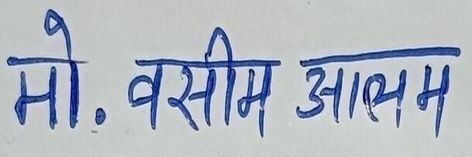 मो. वसीम आलम